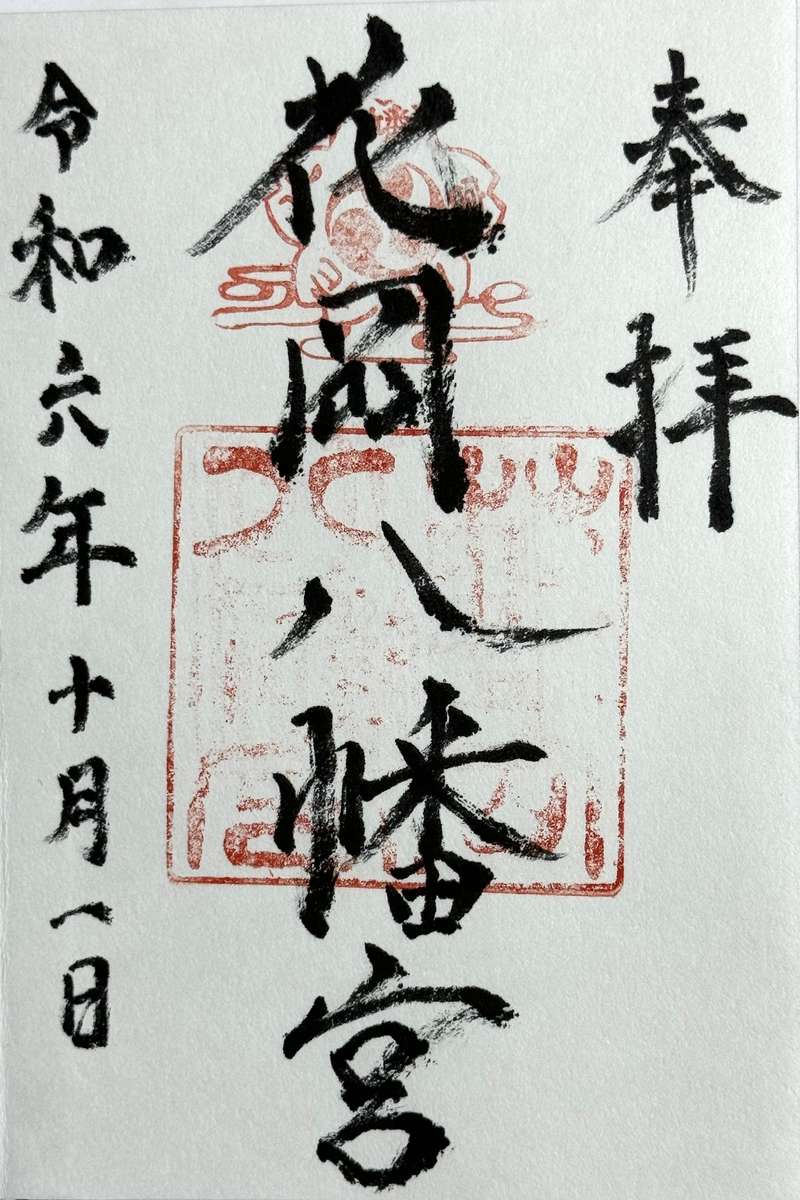 奉拝
花岡八幡宮
令和六年十月一日